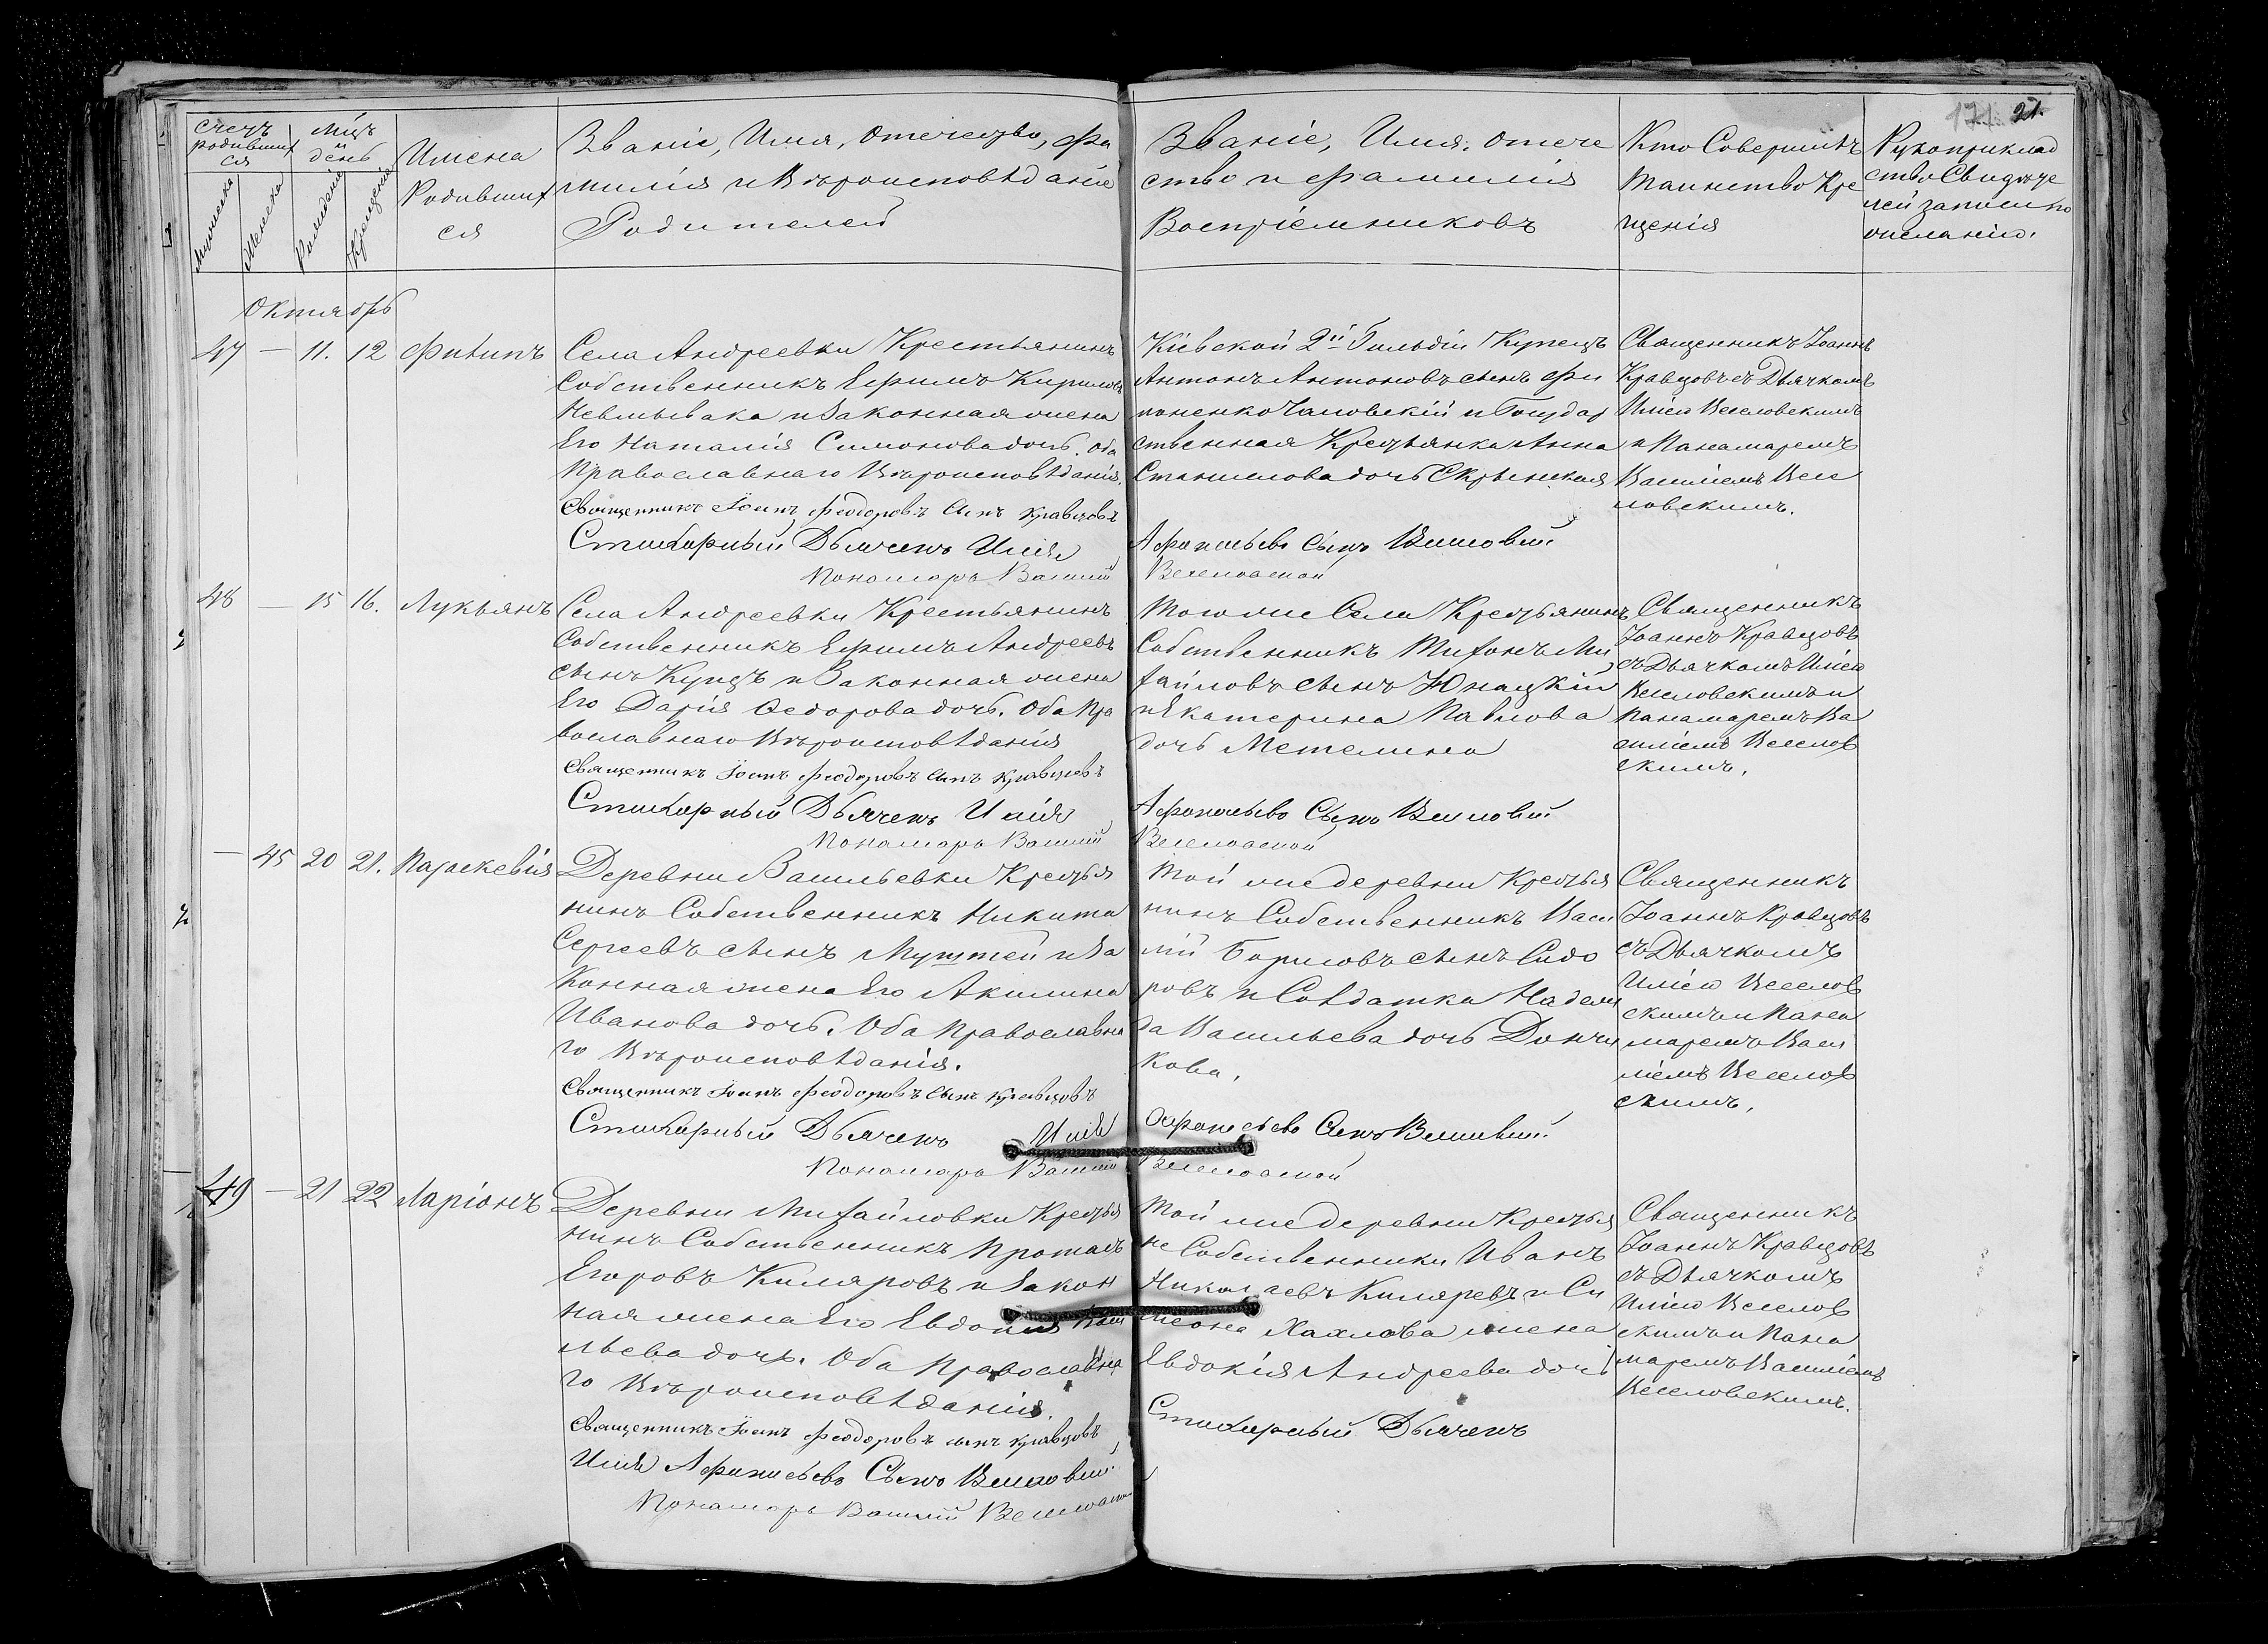 171 21.
Счетъ родившихся
Мѣсъ и день
Имена Родившихся
Званіе, Имя, отечество, Фа
милія и Вѣроисповѣданіе
Родителей
Званіе, Имя, отече
ство и фамилія
Воспріемниковъ
Кто Совершилъ
Таинство Кре
щенія
Рукоприклад
ство Свидѣте
лей записи по
желанію.
Мужеска
Женска
Рожденія
Крещенія
Октябрь
47 — 11. 12 Филипъ
Села Андреевки Крестьянинъ
Собственникъ Ефимъ Кириловъ
и Законная жена
Его Наталія Симонова дочь. Оба
Православнаго Вѣроисповѣданія.
Священникъ Іоанъ Феодоровъ Сынъ Кравцовъ
Стихарный Дьячекъ Илія
Пономарь Василій
Кіевской 2й Гильдіи Купецъ
Антонъ Антоновъ сынъ Фи
поненко Чаповскій и Государ
ственная Крестьянка Анна
дочь
Афанасьевъ Сынъ
Веселовской
Священникъ Іоаннъ
Кравцовъ съ Дьячкомъ
Иліею Веселовскимъ
и Панамаремъ
Василіемъ Весе
ловскимъ.
48 — 15 16. Лукьянъ
Села Андреевки Крестьянинъ
Собственникъ Ефимъ Андреевъ
сынъ Купцъ и Законная жена
Его Дарія Федорова дочь. Оба Пра
вославнаго Вѣроисповѣданія
Священникъ Іоанъ Феодоровъ Сынъ Кравцовъ
Стихарный Дьячекъ Илія
Пономарь Василій
Того же Села Крестьянинъ
Собственникъ Тихонъ Ми
хайловъ сынъ Юнацкій
и Екатерина Павлова
дочь Метелина
Афанасьевъ Сынъ
Веселовской
Священникъ
Іоаннъ Кравцовъ
съ Дьячкомъ Иліею
Веселовскимъ и
Панамаремъ Ва
силіемъ Веселов
скимъ.
— 45 20 21. Параскевія
Деревни Васильевки Крестья
нинъ Собственникъ Никита
Сергеевъ сынъ и За
конная жена Его Акилина
Иванова дочь. Оба Православна
го Вѣроисповѣданія.
Священникъ Іоанъ Феодоровъ Сынъ Кравцовъ
Стихарный Дьячекъ Илія
Пономарь Василій
Той же деревни Крестья
нинъ Собственникъ Васи
лій Борисовъ сынъ Сидо
ровъ и Солдатка Надеж
да Васильева дочь Дончи
кова.
Афанасьевъ Сынъ
Веселовской
Священникъ
Іоаннъ Кравцовъ
съ Дьячкомъ
Иліею Веселов
скимъ и Пана
маремъ Васи
ліемъ Веселов
скимъ.
49 — 21 22 Ларіонъ
Деревни Михайловки Крестья
нинъ Собственникъ Протасъ
Егоровъ Киляровъ и Закон
ная жена Его Евдокія Васи
льева дочь. Оба Православна
го Вѣроисповѣданія.
Священникъ Іоанъ Феодоровъ сынъ Кравцовъ
Илія Афанасьевъ Сынъ
Пономарь Василій
Той же деревни Крестья
не Собственники Иванъ
Николаевъ Киляревъ и Си
меона Хахлова жена
Евдокія Андреева дочь
Стихарный Дьячекъ
Священникъ
Іоаннъ Кравцовъ
съ Дьячкомъ
Иліею Веселов
скимъ и Пана
маремъ Василіемъ
Веселовскимъ.